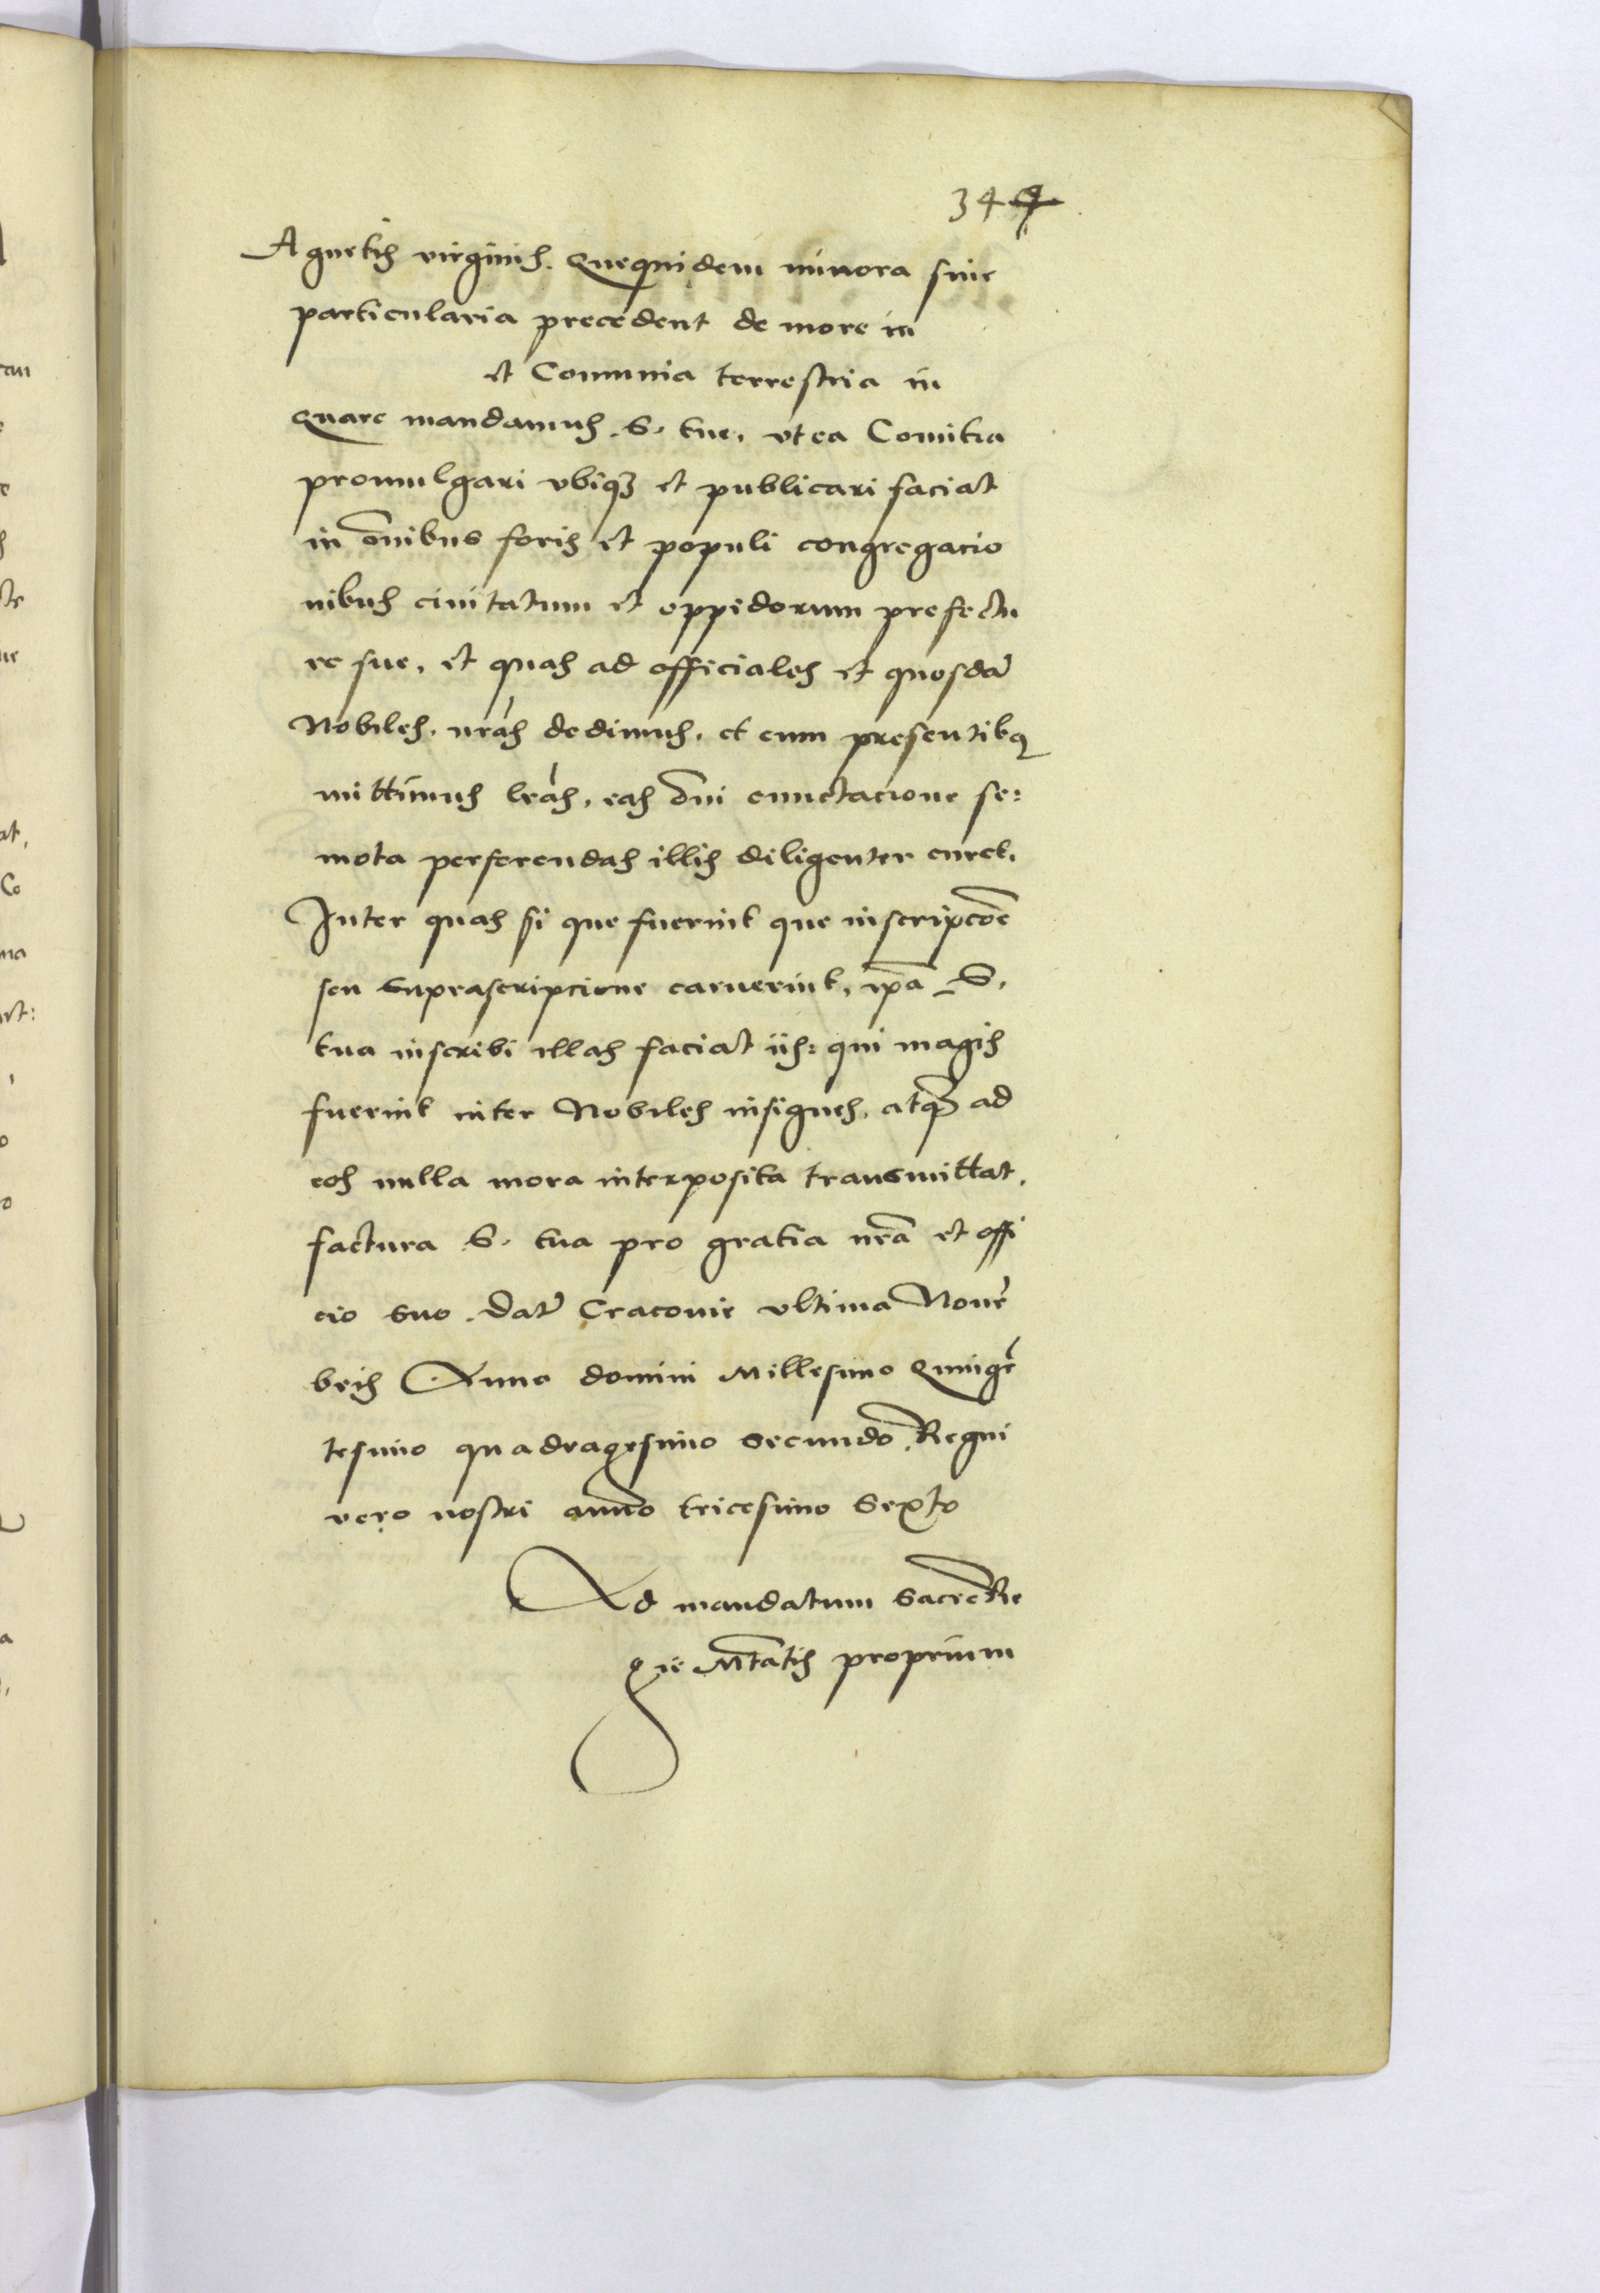 344
Agnetis virginis. Quequidem minora siue
particularia precedent de more in
et Communia terrestria in
Quare mandamus. S. tue, vt ea Comitia
promulgari vbiqꝫ et publicari faciat
in o͞nibus foris et populi congregacio
nibus ciuitatum et oppidorum prefectu
re sue, et quas ad officiales et quosda͂
Nobiles. n͞ras dedimus, et cum presentibꝫ
mittimus l͞ras, eas o͞ni cunctacione se:
mota perferendas illis diligenter curet.
Inter quas si que fuerint que inscripc͞oe
seu suprascripcione caruerint, ip͞a S.
tua inscribi illas faciat iis: qui magis
fuerint inter Nobiles insignes, atqꝫ ad
eos nulla mora interposita transmittat.
factura S. tua pro gratia n͞ra et offi
cio suo. Dat͂ Cracouie vltima Noue͂
bris Anno domini Millesimo Quinge͂
tesimo quadragesimo secundo. Regni
vero nostri anno tricesimo sexto
Ad mandatum Sacre Re
gie M͞tatis proprium